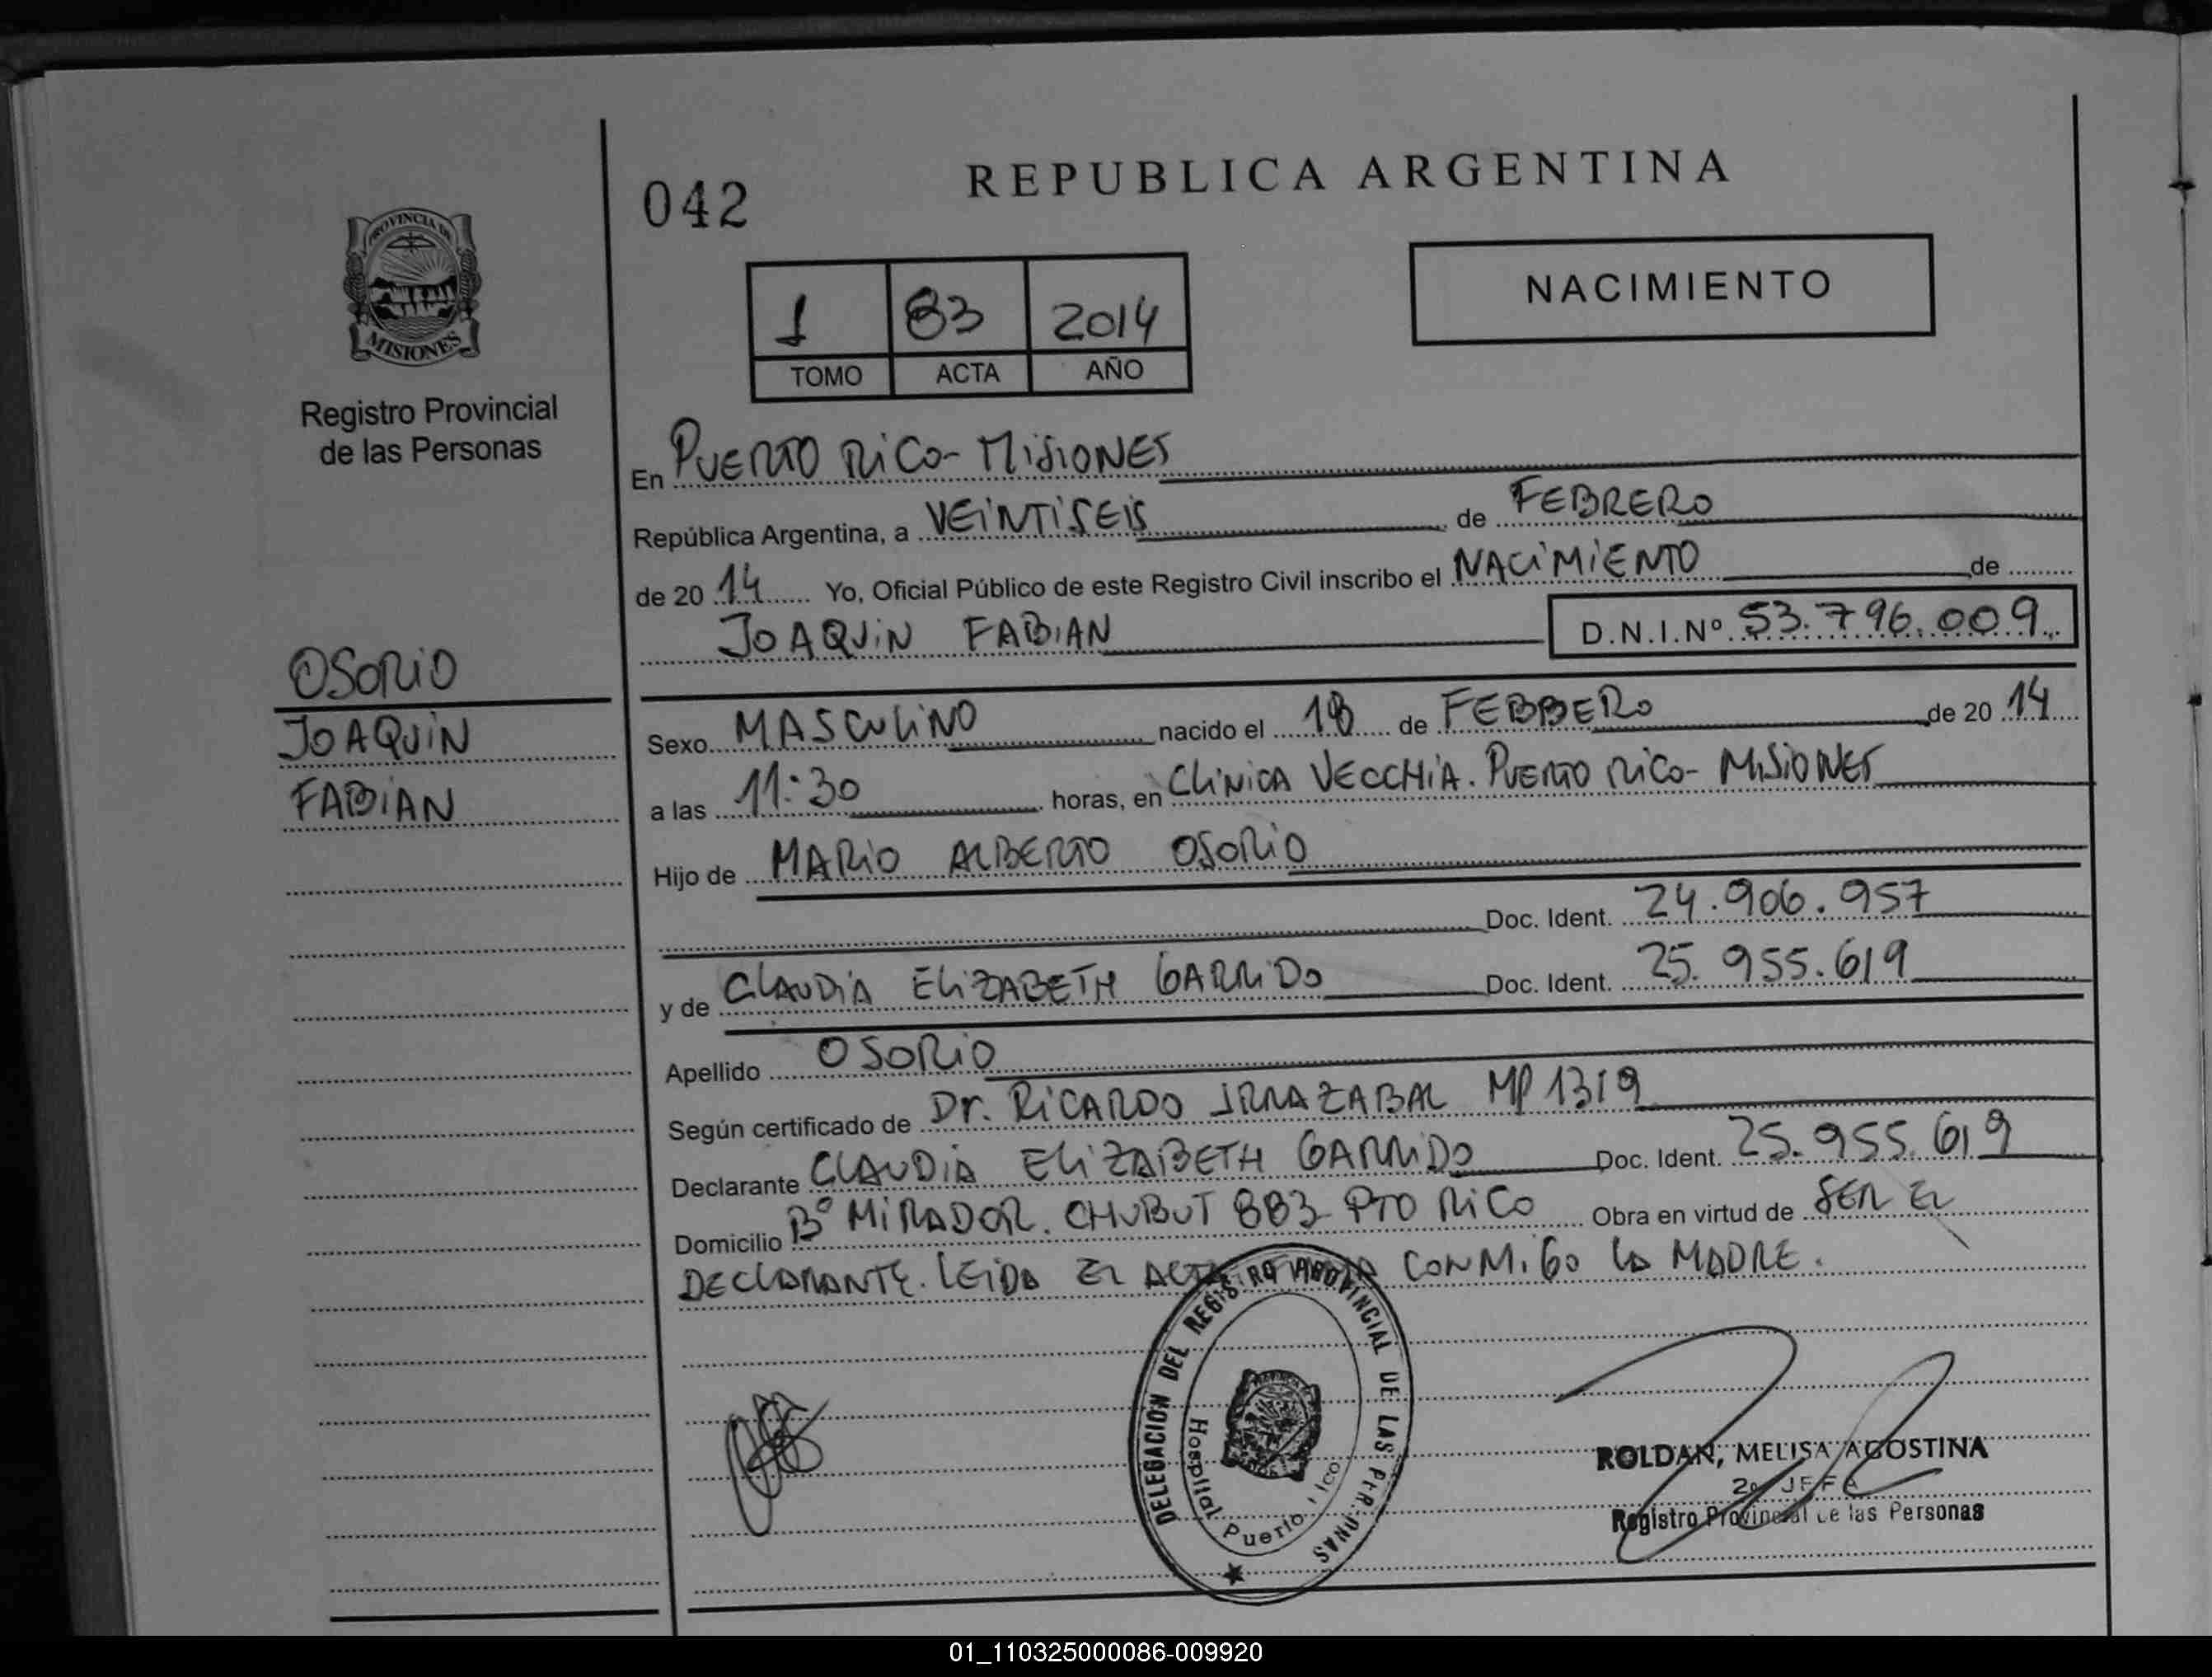 PROVINCIA DE
MISIONES
Registro Provincial
de las Personas
OSORIO
JOAQUIN
FABIAN
042
REPUBLICA ARGENTINA
1 83 2014
TOMO ACTA AÑO
NACIMIENTO
En PUERTO RICO - MISIONES
República Argentina, a VEINTISEIS de FEBRERO
de 20 14 Yo, Oficial Público de este Registro Civil inscribo el NACIMIENTO de
JOAQUIN FABIAN D.N.I.Nº 53.796.009
Sexo MASCULINO nacido el 18 de FEBBERO de 20 14
a las 11:30 horas, en CLINICA VECCHIA. PUERTO RICO - MISIONES
Hijo de MARIO ALBERTO OSORIO
Doc. Ident. 24.906.957
y de CLAUDIA ELIZABETH GARRIDO Doc. Ident. 25.955.619
Apellido OSORIO
Según certificado de Dr. RICARDO IRRAZABAL MP 1319
Declarante CLAUDIA ELIZABETH GARRIDO Doc. Ident. 25.955.619
Domicilio Bº MIRADOR. CHUBUT 883 PTO RICO Obra en virtud de SER EL
DECLARANTE. LEIDA EL ACTA FIRMA CONMIGO LA MADRE.
DELEGACION DEL REGISTRO PROVINCIAL DE LAS PERSONAS
Hospital Puerto Rico
ROLDAN, MELISA AGOSTINA
2º JEFA
Registro Provincial de las Personas
01_110325000086-009920